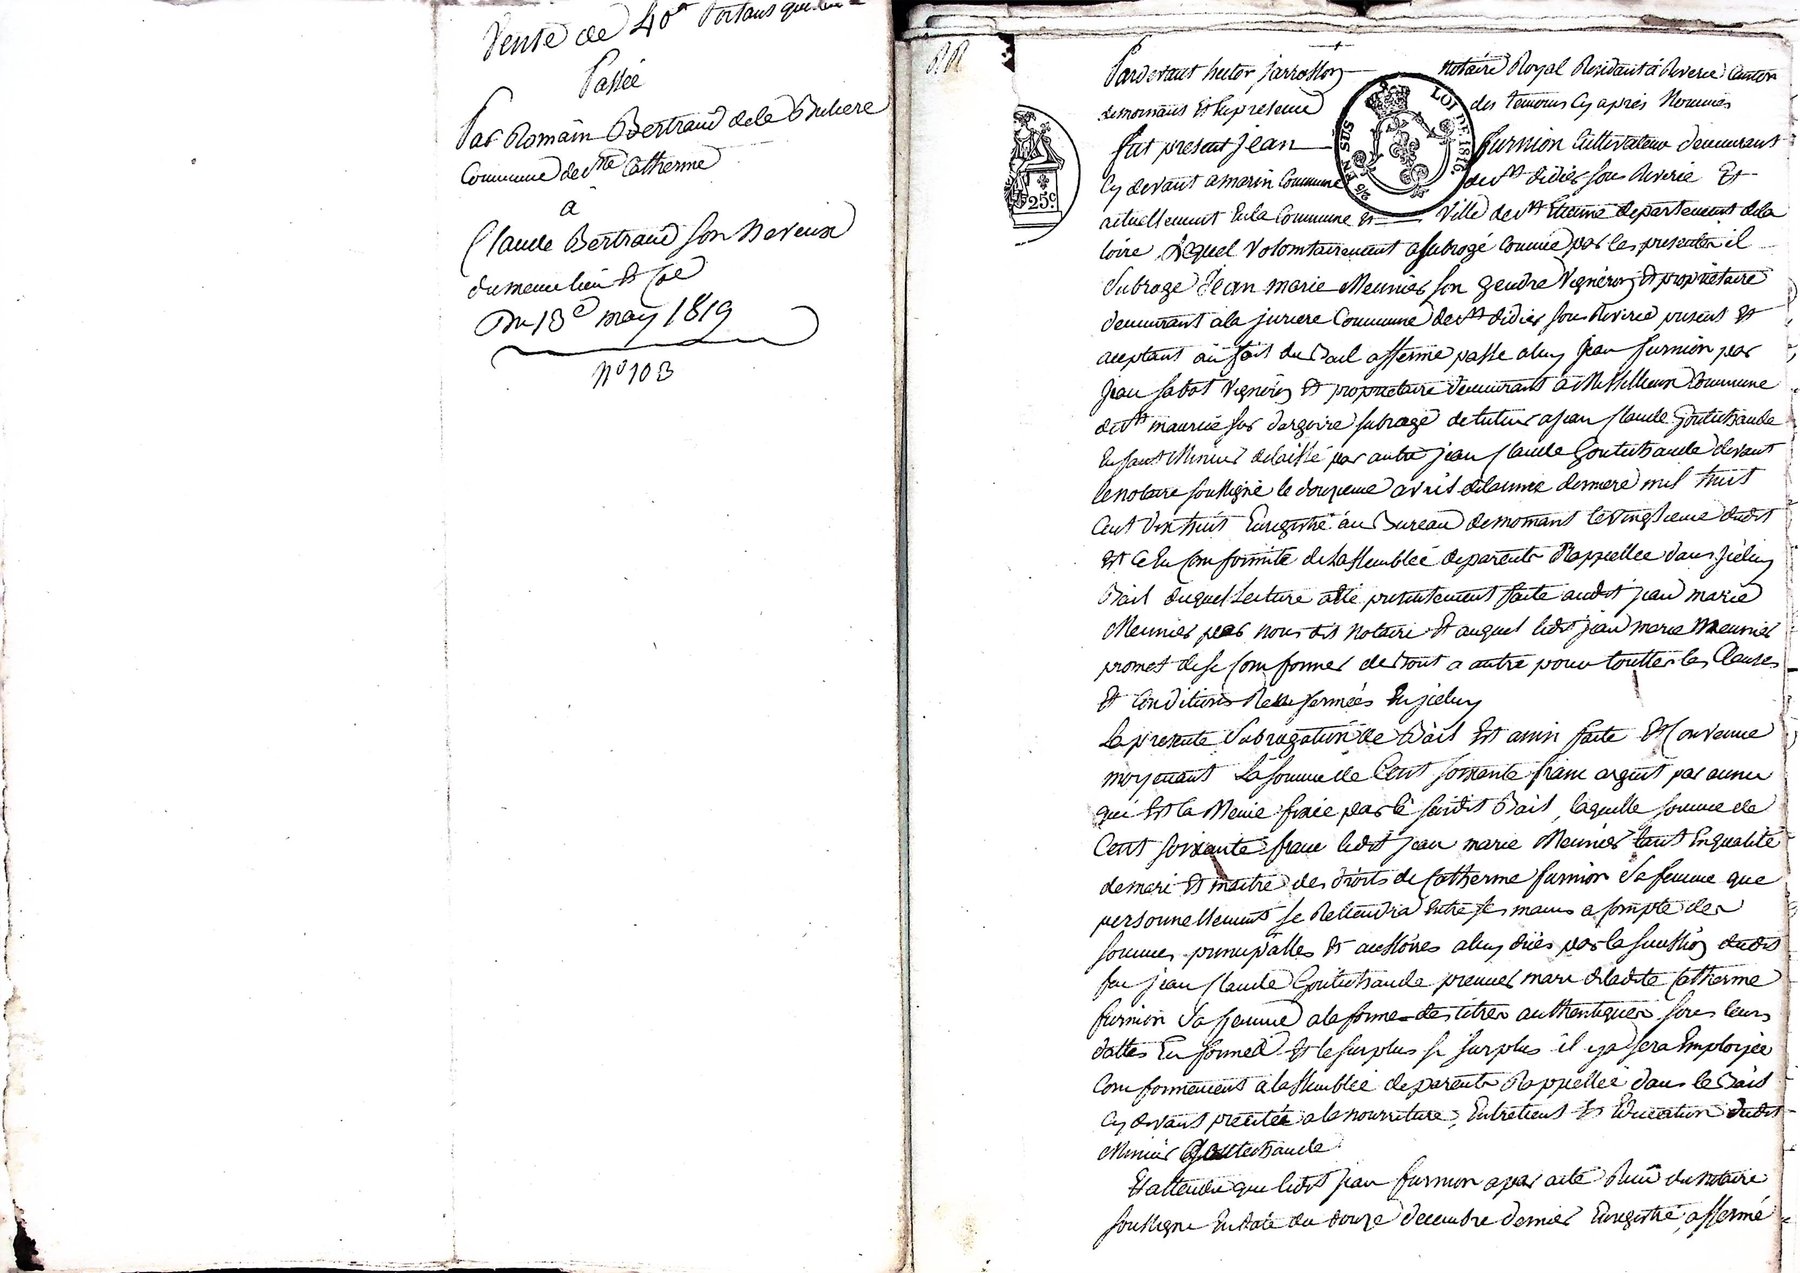 Vente de 40# portant quittance
Passée
Par Romain Bertrand de la Buliere
Commune de Ste Catherine
a
Claude Bertrand son neveux
du meme lieu et Coe
Du 13e may 1819
No 103
Pardevant hector jarrosson notaire Royal Residant à Riverie Canton
de mornant et en presence des temoins cy après Nommés
fut present jean furnion Cultivateur demeurant
Cy devant a marin Commune de St didier sous Riverie Et
actuellement En la Commune et Ville de St Etienne departement de la
loire, Lequel Volontairement a subrogé comme par les presentes il
Subroge Jean marie Meunier son gendre Vigneron et propriétaire
demeurant a la juriere Commune de St didier sous Riverie present et
aceptant au fait du Bail afferme passé a luy jean furnion par
jean sabot Vigneron et proprietaire demeurant à Commune
de St maurice sur dargoire subrogé de tuteur a jean Claude Goutechaude
Enfant Mineur delaissé par autre jean Claude Goutechaude devant
le notaire soussigné le douzieme avril de lannée derniere mil huit
Cent Dix huit Enregistré au Bureau de mornant le vingtieme dudit
et ce En Conformité de lassemblée de parents Rappellée dans jceluy
Bail duquel Lecture a été presentement faite audit jean marie
Meunier par nous dit notaire Et auquel ledit jean marie Meunier
promet de se Conformer de tout a autre pour touttes les Clauses
et Conditions Renfermées En jceluy
La presente Subrogation de Bail Est ainsi faite et Convenue
moyenant La somme de Cent soixante franc argent par année
qui Est la Meme fixée par le susdit Bail, laquelle somme de
Cent soixante franc ledit jean marie Meunier tant En qualité
de mari et maitre des droits de Catherine furnion Sa femme que
personnellement se Retiendra entre ses mains a Compte des
sommes principalles et acessoires a luy dües par la sucession dudit
feu jean Claude Goutechaude premier mari de ladite Catherine
furnion Sa femme a la forme des titres authentiques sous leurs
dattes En forme et le surplus si surplus il y a sera Employée
Conformement a lassemblée de parents Rappellée dans le Bail
Cy devant precitée a la nourriture, Entretient et Education dudit
Mineur Goutechaude
Et attendu que ledit jean furnion a par acte Recu du notaire
soussigné En date du douze decembre dernier Enregistré, affermé
LOI DE 1816.
EN SUS
25c